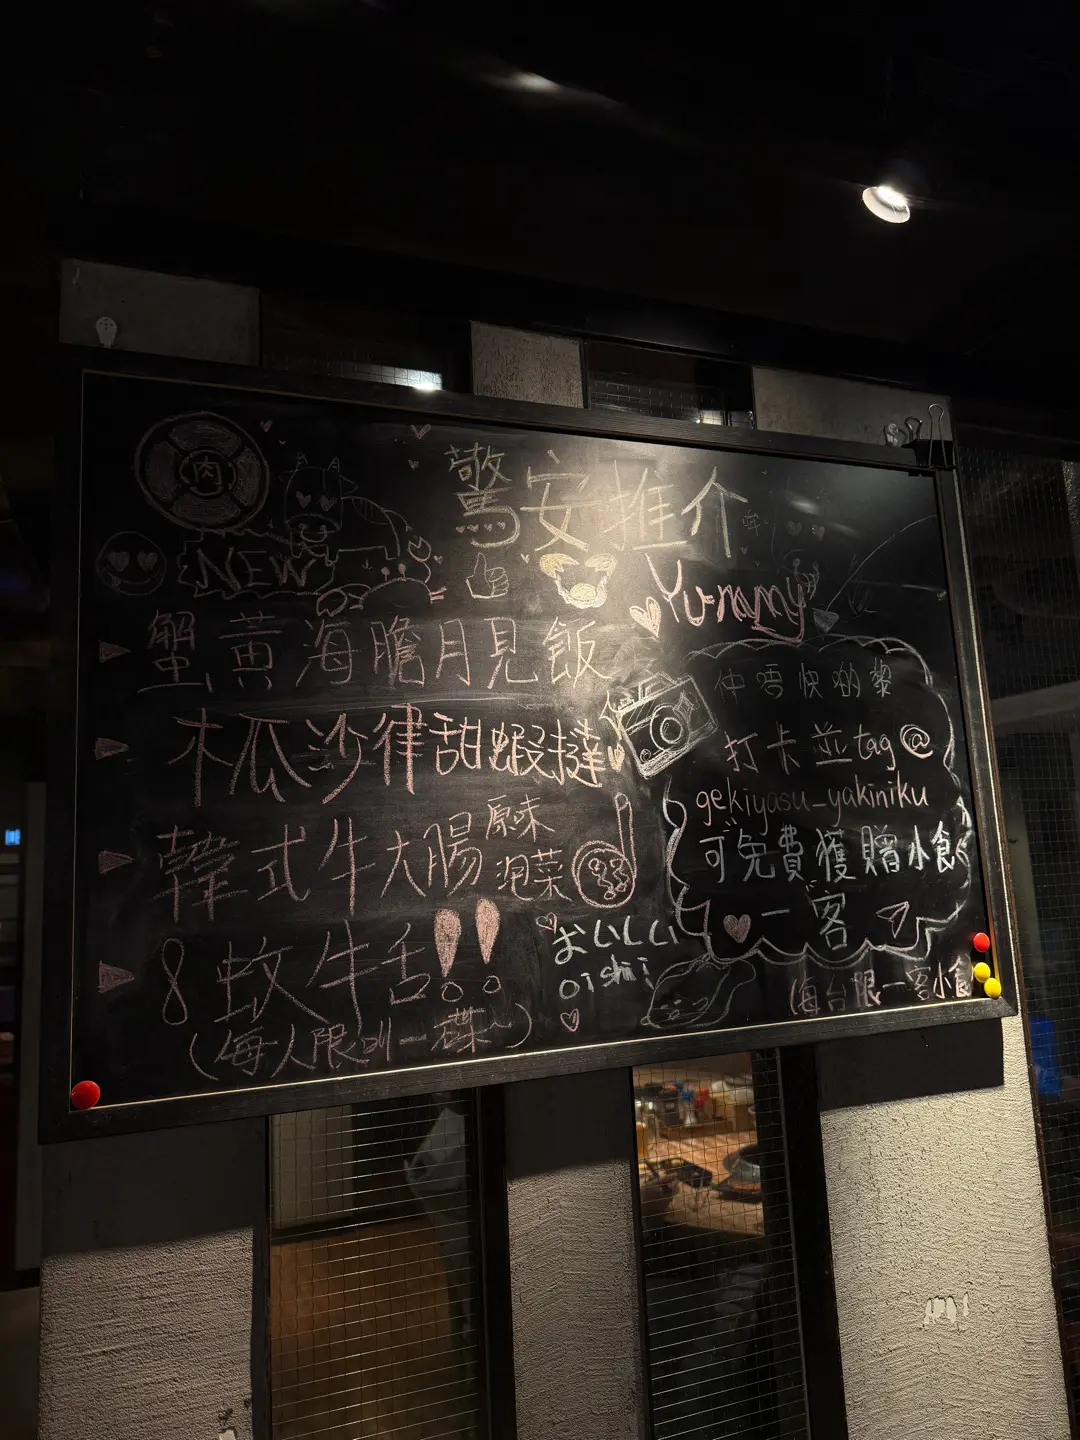 肉
驚安推介
NEW
Yummy
蟹黃海膽月見飯
木瓜沙律甜蝦撻
韓式牛大腸
原味
泡菜
8蚊牛舌!!
(每人限叫一碟~)
おいしい
oishii
仲唔快啲嚟
打卡並tag@
gekiyasu_yakiniku
可免費獲贈小食
一客
(每台限一客小食